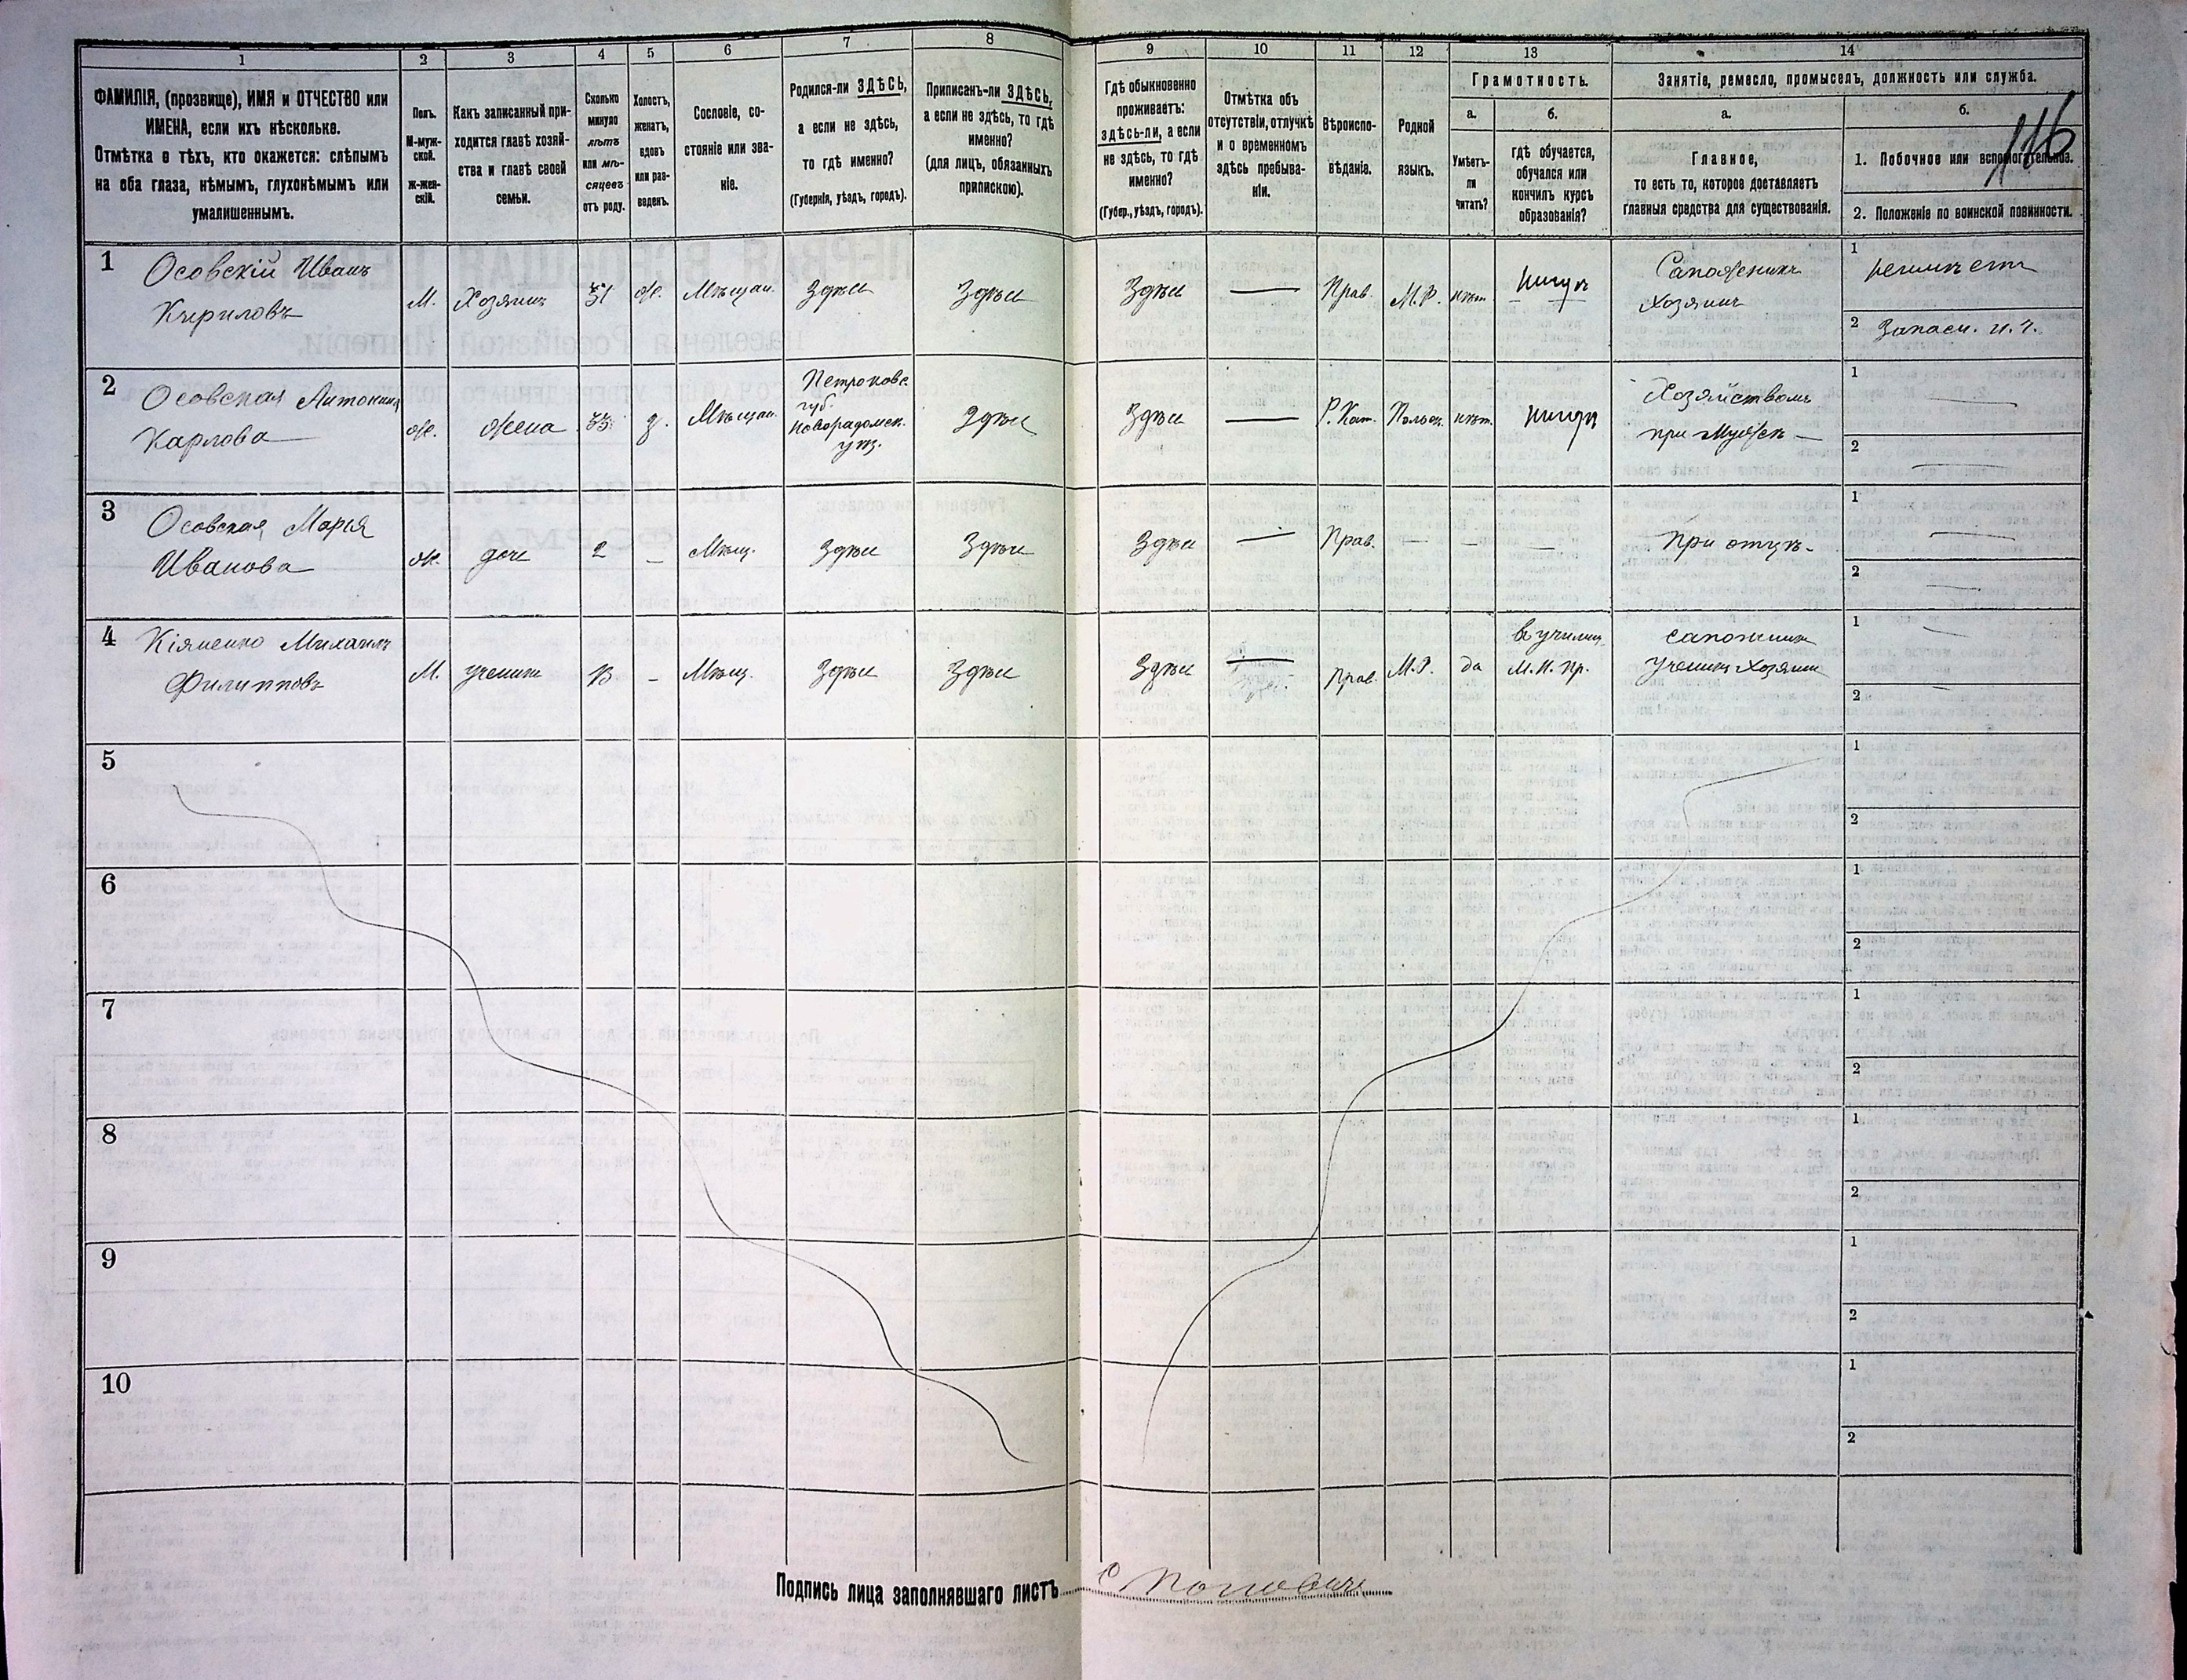 1 2 3 4 5 6 7 8 9 10 11 12 13 14
ФАМИЛІЯ, (прозвище), ИМЯ и ОТЧЕСТВО или
ИМЕНА, если ихъ нѣсколько.
Отмѣтка о тѣхъ, кто окажется: слѣпымъ
на оба глаза, нѣмымъ, глухонѣмымъ или
умалишеннымъ.
Полъ.
М-муж-
ской.
ж-жен-
скій.
Какъ записанный при-
ходится главѣ хозяй-
ства и главѣ своей
семьи.
Сколько
минуло
лѣтъ
или мѣ-
сяцевъ
отъ роду.
Холостъ,
женатъ,
вдовъ
или раз-
веденъ.
Сословіе, со-
стояніе или зва-
ніе.
Родился-ли ЗДѢСЬ,
а если не здѣсь,
то гдѣ именно?
(Губернія, уѣздъ, городъ).
Приписанъ-ли ЗДѢСЬ,
а если не здѣсь, то гдѣ
именно?
(для лицъ, обязанныхъ
припискою).
Гдѣ обыкновенно
проживаетъ:
здѣсь-ли, а если
не здѣсь, то гдѣ
именно?
(Губер., уѣздъ, городъ).
Отмѣтка объ
отсутствіи, отлучкѣ
и о временномъ
здѣсь пребыва-
ніи.
Вѣроиспо-
вѣданіе.
Родной
языкъ.
Грамотность.
а.
Умѣетъ-
ли
читать?
б.
гдѣ обучается,
обучался или
кончилъ курсъ
образованія?
Занятіе, ремесло, промыселъ, должность или служба.
а.
Главное,
то есть то, которое доставляетъ
главныя средства для существованія.
б.
116
1. Побочное или вспомогательное.
2. Положеніе по воинской повинности.
1 Осовскій Иванъ
Кириловъ
М. Хозяинъ 31 ж. Мѣщан. Здѣсь Здѣсь Здѣсь — Прав. М.Р. нѣтъ
Сапожникъ
Хозяинъ
1
2 Запасн. н. ч.
2 Осовская Антонина
Карлова
ж. жена 33 з. Мѣщан.
Петроковс.
губ.
Новорадомск.
уѣз.
Здѣсь Здѣсь — Р.Кат. Польск. нѣт.
Хозяйствомъ
при Мужѣ —
1 —
2 —
3 Осовская Марья
Иванова
ж. дочь 2 — Мѣщ. Здѣсь Здѣсь Здѣсь — Прав. — — — При отцѣ.
1 —
2 —
4 Кіяненко Михаилъ
Филипповъ
М. ученикъ 13 — Мѣщ. Здѣсь Здѣсь Здѣсь — Прав. М.Р. да
въ училищ.
М. Н. Пр.
сапожник
Ученикъ Хозяина
1 —
2 —
5 1
2
6 1
2
7 1
2
8 1
2
9 1
2
10 1
2
Подпись лица заполнявшаго листъ